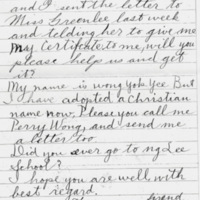 and I sent the letter to
Miss Greenlee last week
and telding her to give me
my Certificate to me, will you
please help us and get
it?
My name is wong yok yee But
I have adopted a Christian
name now, Please you call me
Perry Wong, and send me
a letter too
Did you ever go to ng Lee
School?
I hope you are well, with
best regard.
friend